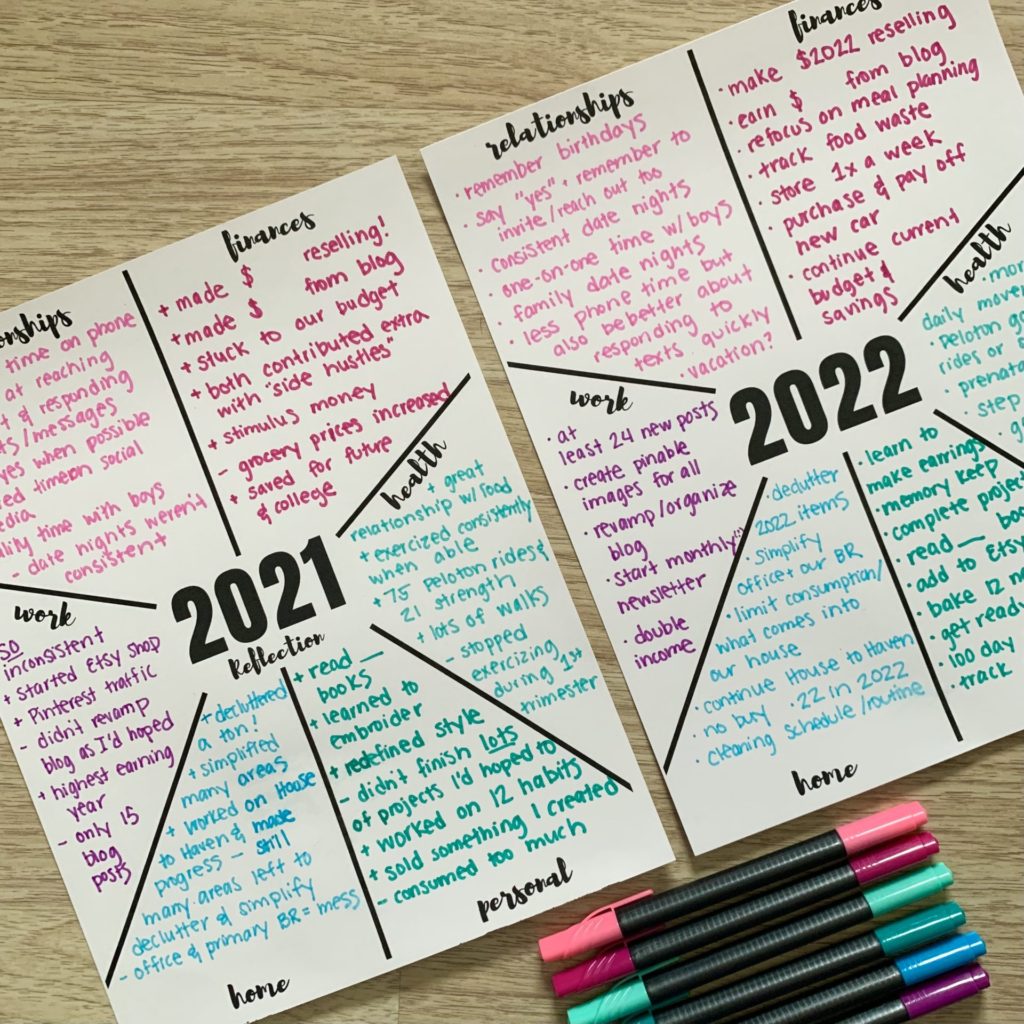 onships
time on phone
at reaching
t & responding
ts/messages
yes when possible
ed time on social
edia
lity time with boys
- date nights weren't
consistent
finances
+ made $ reselling!
+ made $ from blog
+ stuck to our budget
+ both contributed extra
with "side hustles"
+ stimulus money
- grocery prices increased
+ saved for future
& college
health
+ great
relationship w/food
+ exercised consistently
when able
+ 75 Peloton rides &
21 strength
+ lots of walks
- stopped
exercizing
during 1st
trimester
work
so
inconsistent
+ started Etsy shop
+ Pinterest traffic
- didn't revamp
blog as I'd hoped
+ highest earning
year
- only 15
blog
posts
2021
Reflection
+ decluttered
a ton!
+ simplified
many areas
+ worked on House
to Haven & made
progress - still
many areas left to
declutter & simplify
- office & primary BR = mess
home
+ read __
books
+ learned to
embroider
+ redefined style
- didn't finish lots
of projects I'd hoped to
+ worked on 12 habits
+ sold something I created
- consumed too much
personal
relationships
· remember birthdays
say "yes" + remember to
invite/reach out too
· consistent date nights
· one-on-one time w/ boys
· family date nights
· less phone time but
also be better about
responding to
texts quickly
· vacation?
finances
· make $2022 reselling
· earn $ from blog
· refocus on meal planning
· track food waste
· store 1x a week
· purchase & pay off
new car
· continue current
budget &
savings
health
· mor
daily movem
· Peloton go
rides or
· prenata
· step
· g
work
· at
least 24 new posts
· create pinable
images for all
· revamp/organize
blog
· start monthly
newsletter
· double
income
2022
· declutter
2022 items
· simplify
office + our BR
· limit consumption/
what comes into
our house
· continue House to Haven
· no buy .22 in 2022
· cleaning schedule/routine
home
· learn to
make earrings
· memory keep
· complete project
· read __ boo
· add to Etsy
· bake 12 n
· get ready
· 100 day
· track